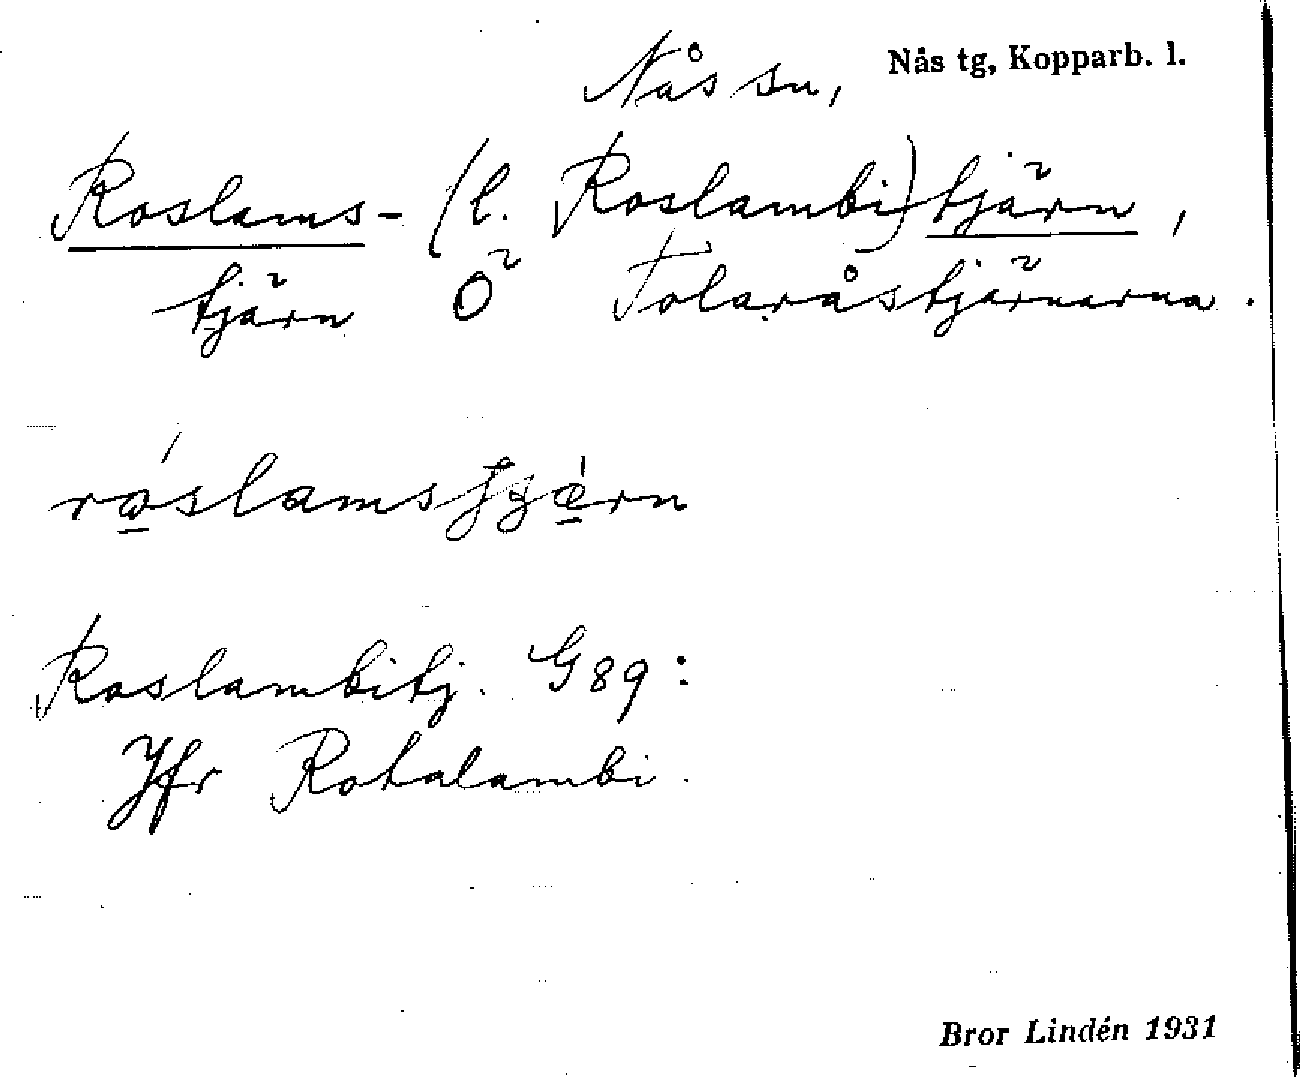 Nås sn, Nås tg, Kopparb. l.
Roslams- (l. Roslambi) tjärn,
tjärn Ö Tolaråstjärnarna.
Roslambitj. G89:
Jfr Rotalambi.
Bror Lindén 1931